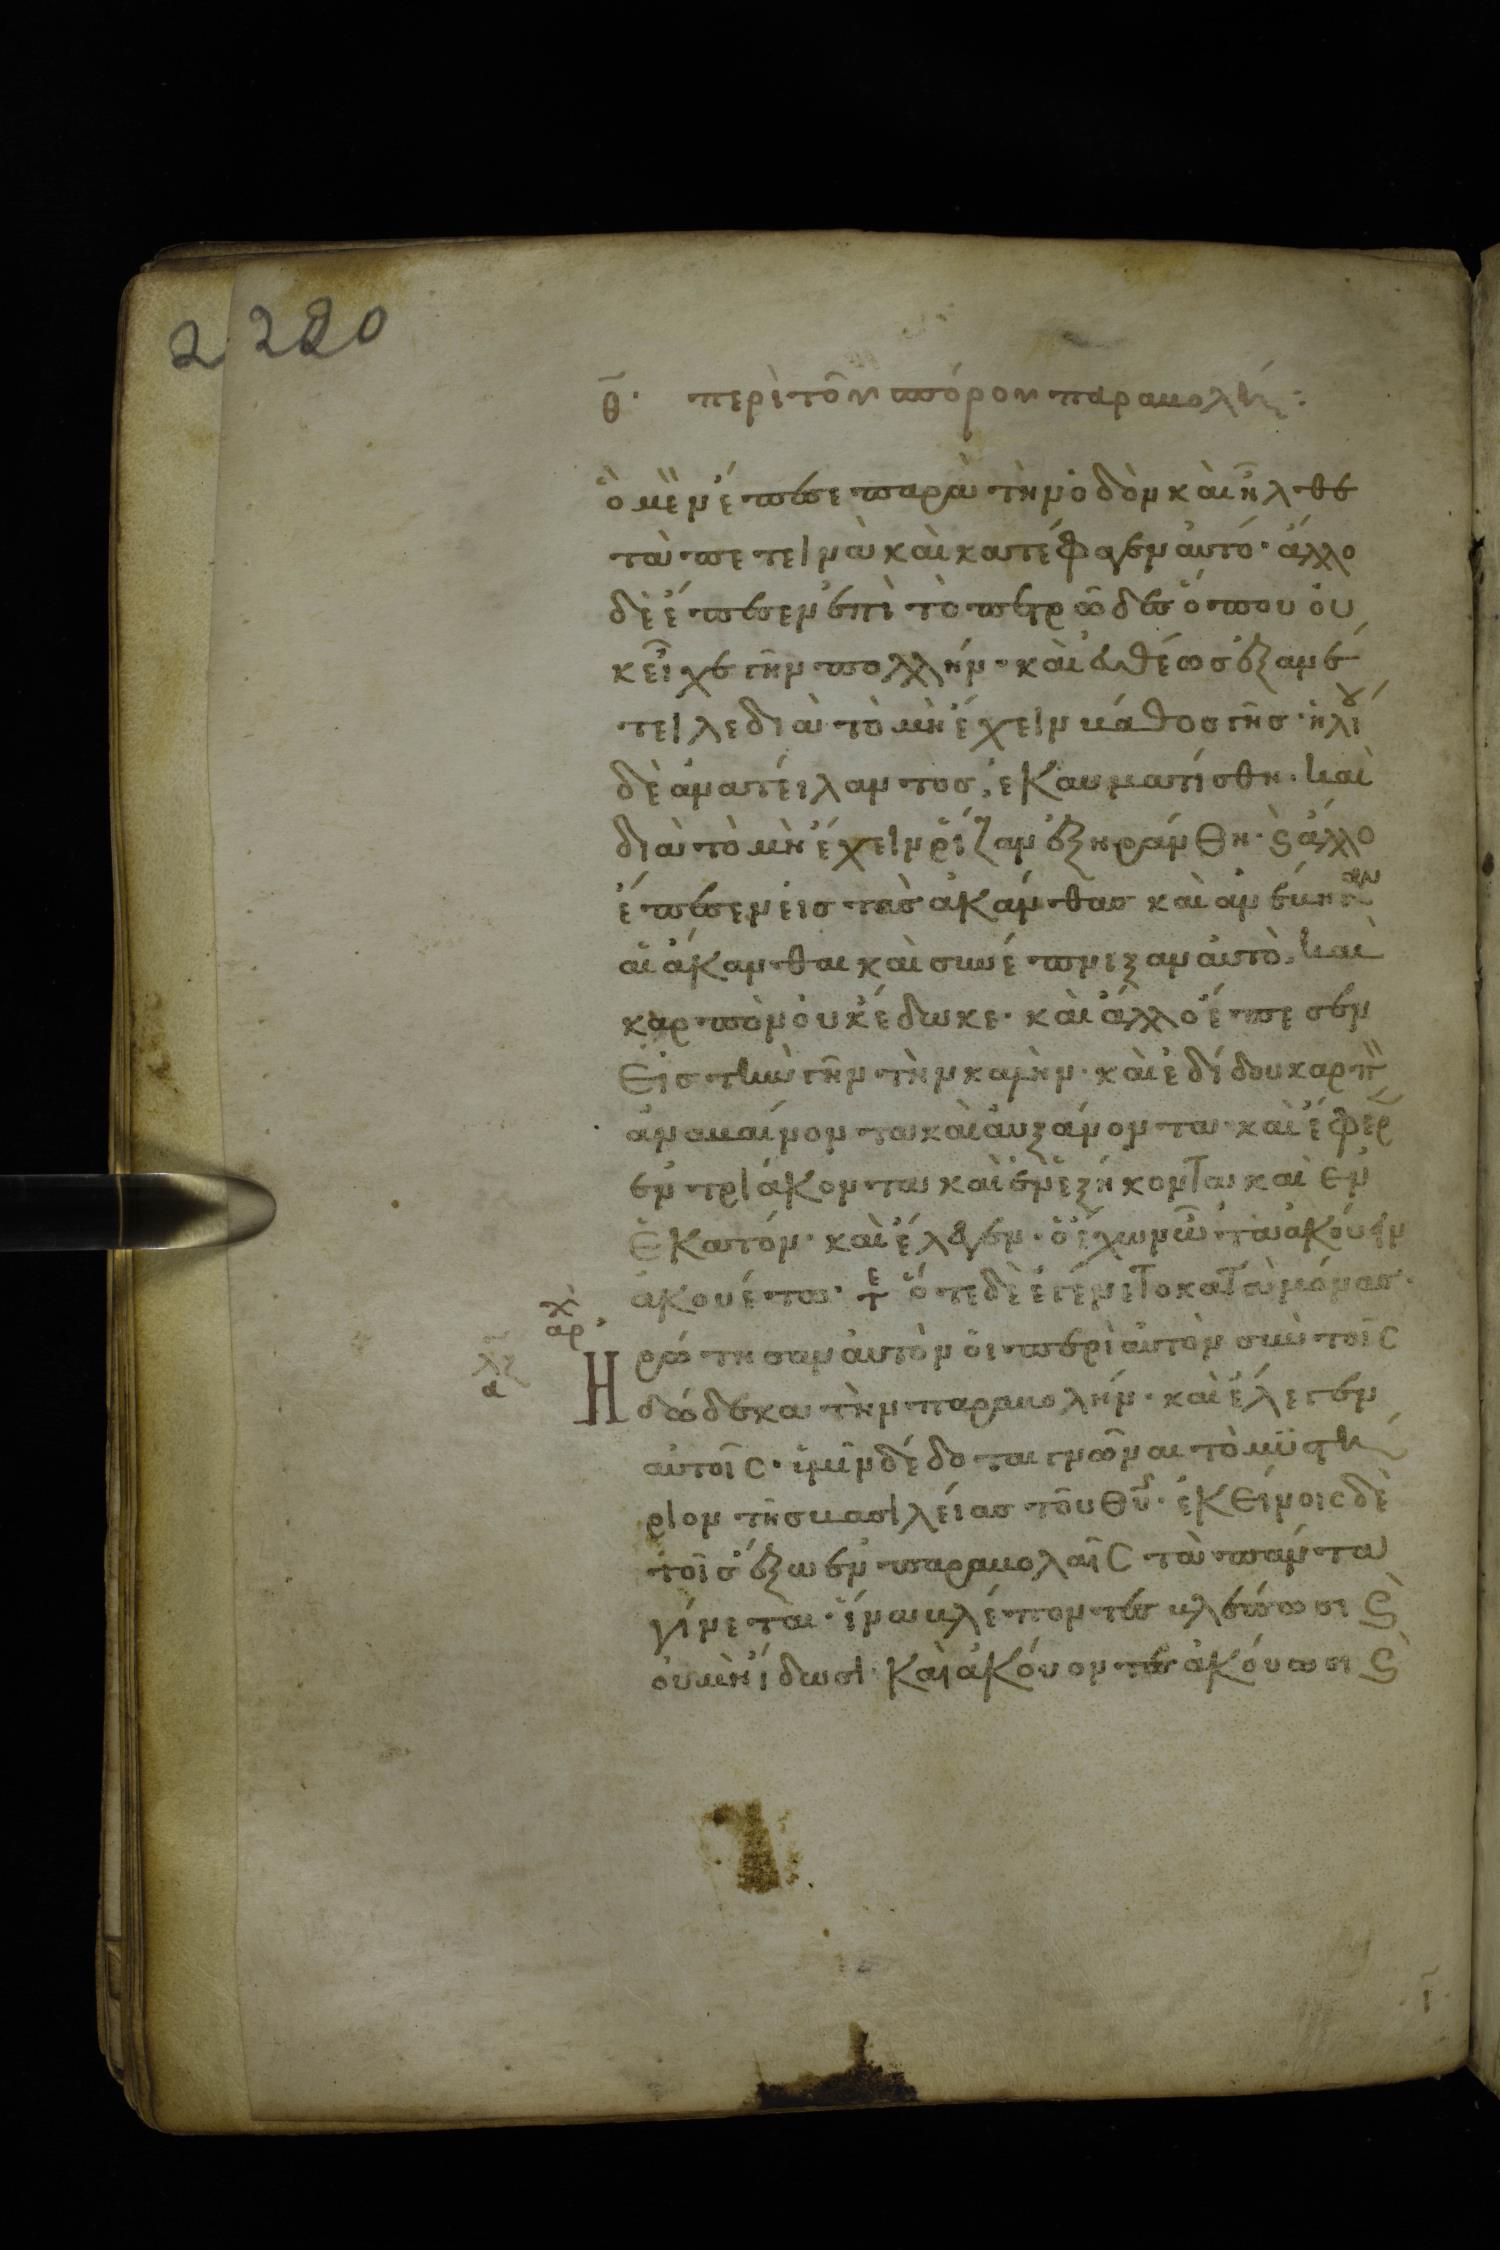 2 220
θ̄· περὶ τοῦ σπόρου παραβολής:
ὃ μὲν ἔπεσε παρὰ τὴν ὁδὸν καὶ ἦλθε
τὰ πετεινὰ καὶ κατέφαγεν αὐτό· ἄλλο
δὲ ἔπεσεν ἐπὶ τὸ πετρῶδες ὅπου οὐ
κ εἶχε γῆν πολλήν· καὶ εὐθέως ἐξανέ
τειλε διὰ τὸ μὴ ἔχειν βάθος γῆς· ἡλίου
δὲ ἀνατείλαντος, ἐκαυματίσθη· καὶ
διὰ τὸ μὴ ἔχειν ῥίζαν ἐξηράνθη· ϛ ἄλλο
ἔπεσεν εἰς τὰς ἀκάνθας καὶ ἀνέβησαν
αἱ ἄκανθαι καὶ συνέπνιξαν αὐτὸ, καὶ
καρπὸν οὐκ έδωκε· καὶ ἄλλο ἔπεσεν
εἰς τὴν γῆν τὴν καλὴν· καὶ ἐδίδου καρπὸν
ἀναβαίνοντα καὶ αὐξάνοντα· καὶ ἔφερ
ἐν τριάκοντα καὶ ἐν ἑξήκοντα καὶ ἐν
ἑκατόν· καὶ ἔλεγεν· ὁ ἔχων ὦτα ἀκούειν
ἀκουέτω· τε ὅτε δὲ ἐγένετο καταμόνας·
χ̀
αρ
ρώτησαν αὐτὸν οἱ περὶ αὐτὸν σὺν τοῖς
λϛ
α
Η δώδεκα τὴν παραβολήν· καὶ ἔλεγεν
αὐτοῖς· ὑμῖν δέδοται γνῶναι τὸ μϋστή
ριον τῆς βασιλείας τοῦ θῦ· ἐκείνοις δὲ
τοῖς ἔξω ἐν παραβολαῖς τὰ πάντα
γίνεται· ἵνα βλέποντες βλέπωσι ϛ
οὐ μὴ ἴδωσι· καὶ ἀκούοντες ἀκούωσι ϛ
ῑ